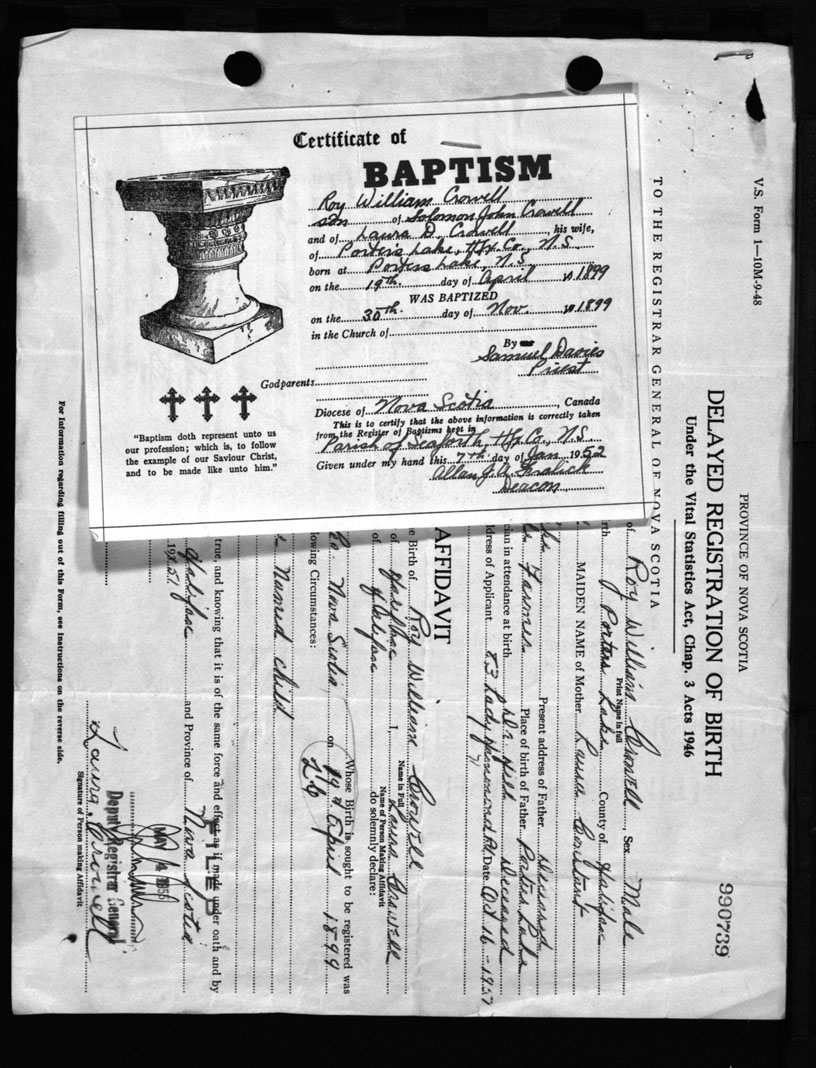 Certificate of
BAPTISM
Roy William Crowell
son of Solomon John Crowell
and of Laura D. Crowell, his wife,
of Porters Lake, Hfx. Co., N.S.
born at Porters Lake, N.S.
on the 19th. day of April 1899
WAS BAPTIZED
on the 30th. day of Nov. 1899
in the Church of
By
Samuel Davies
Priest
Godparents
Diocese of Nova Scotia, Canada
This is to certify that the above information is correctly taken
from the Register of Baptisms kept in
Parish of Seaforth, Hfx. Co., N.S.
Given under my hand this 7th. day of Jan. 1952
Allan J. A.
Deacon
"Baptism doth represent unto us
our profession; which is, to follow
the example of our Saviour Christ,
and to be made like unto him."
V.S. Form 1—10M-9-48
PROVINCE OF NOVA SCOTIA
990739
DELAYED REGISTRATION OF BIRTH
Under the Vital Statistics Act, Chap. 3 Acts 1946
TO THE REGISTRAR GENERAL OF NOVA SCOTIA
of Roy William Crowell, Sex Male
Print Name in full
Porters Lake County of Halifax
MAIDEN NAME of Mother Laura
Present address of Father Deceased
Farmer Place of birth of Father Porters Lake
in attendance at birth Dr. Deceased
Address of Applicant 83 Lady Hammond Rd. Date Oct 16
AFFIDAVIT
Birth of Roy William Crowell
Name in Full
of Halifax I, Laura Crowell
Name of Person Making Affidavit
of Halifax do solemnly declare:
Whose Birth is sought to be registered was
Nova Scotia on 19 April 1899
Circumstances:
Named child
true, and knowing that it is of the same force and effect as if made under oath and by
Halifax and Province of Nova Scotia
FILED
MAY 14 1956
Deputy Registrar General
Laura Crowell
Signature of Person making Affidavit
For information regarding filling out of this Form, see instructions on the reverse side.